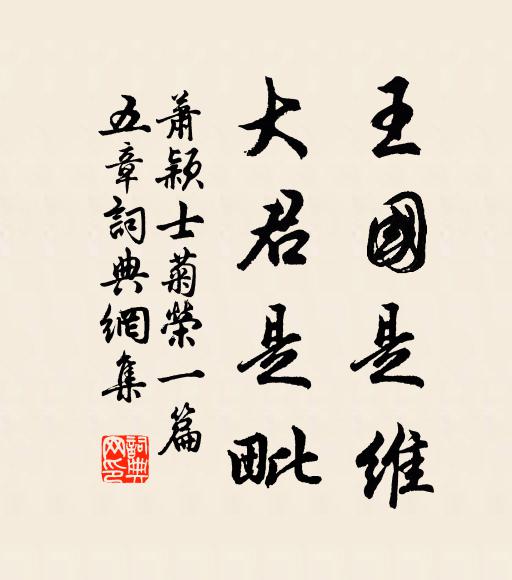 王國是維
大君是毗
蕭穎士菊榮一篇
五章詞典網集
詞典网印